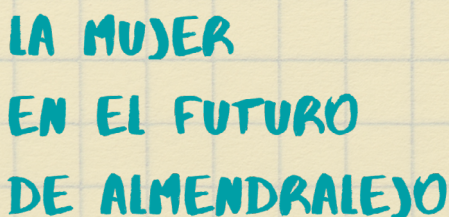 LA MUJER
EN EL FUTURO
DE ALMENDRALEJO